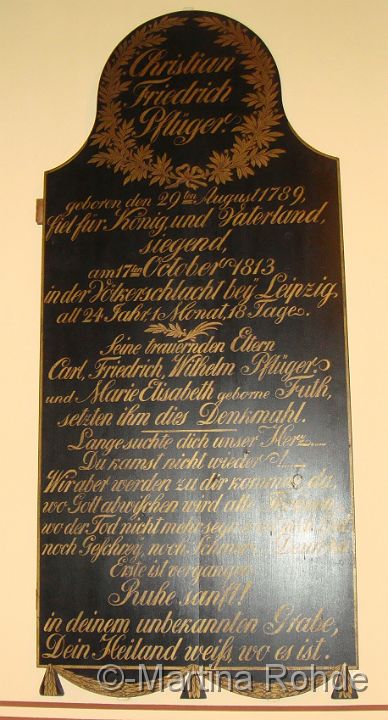 Christian
Friedrich
Pflüger.
geboren den 29ten August 1789,
fiel für König, und Vaterland,
siegend,
am 17ten October 1813
in der Völkerschlacht bey Leipzig,
alt 24 Jahr 1 Monat, 18 Tage.
Seine trauernden Eltern
Carl, Friedrich, Wilhelm Pflüger.
und Marie Elisabeth geborne Futh,
setzten ihm dies Denkmahl.
Lange suchte dich unser Herz
Du kamst nicht wieder
Wir aber werden zu dir kommen da,
wo Gott abwischen wird alle
wo der Tod nicht mehr seyn
noch Geschrey, noch Schmerz
Erste ist vergangen
Ruhe sanft!
in deinem unbekannten Grabe,
Dein Heiland weiß, wo es ist.
©-Martina Rohde